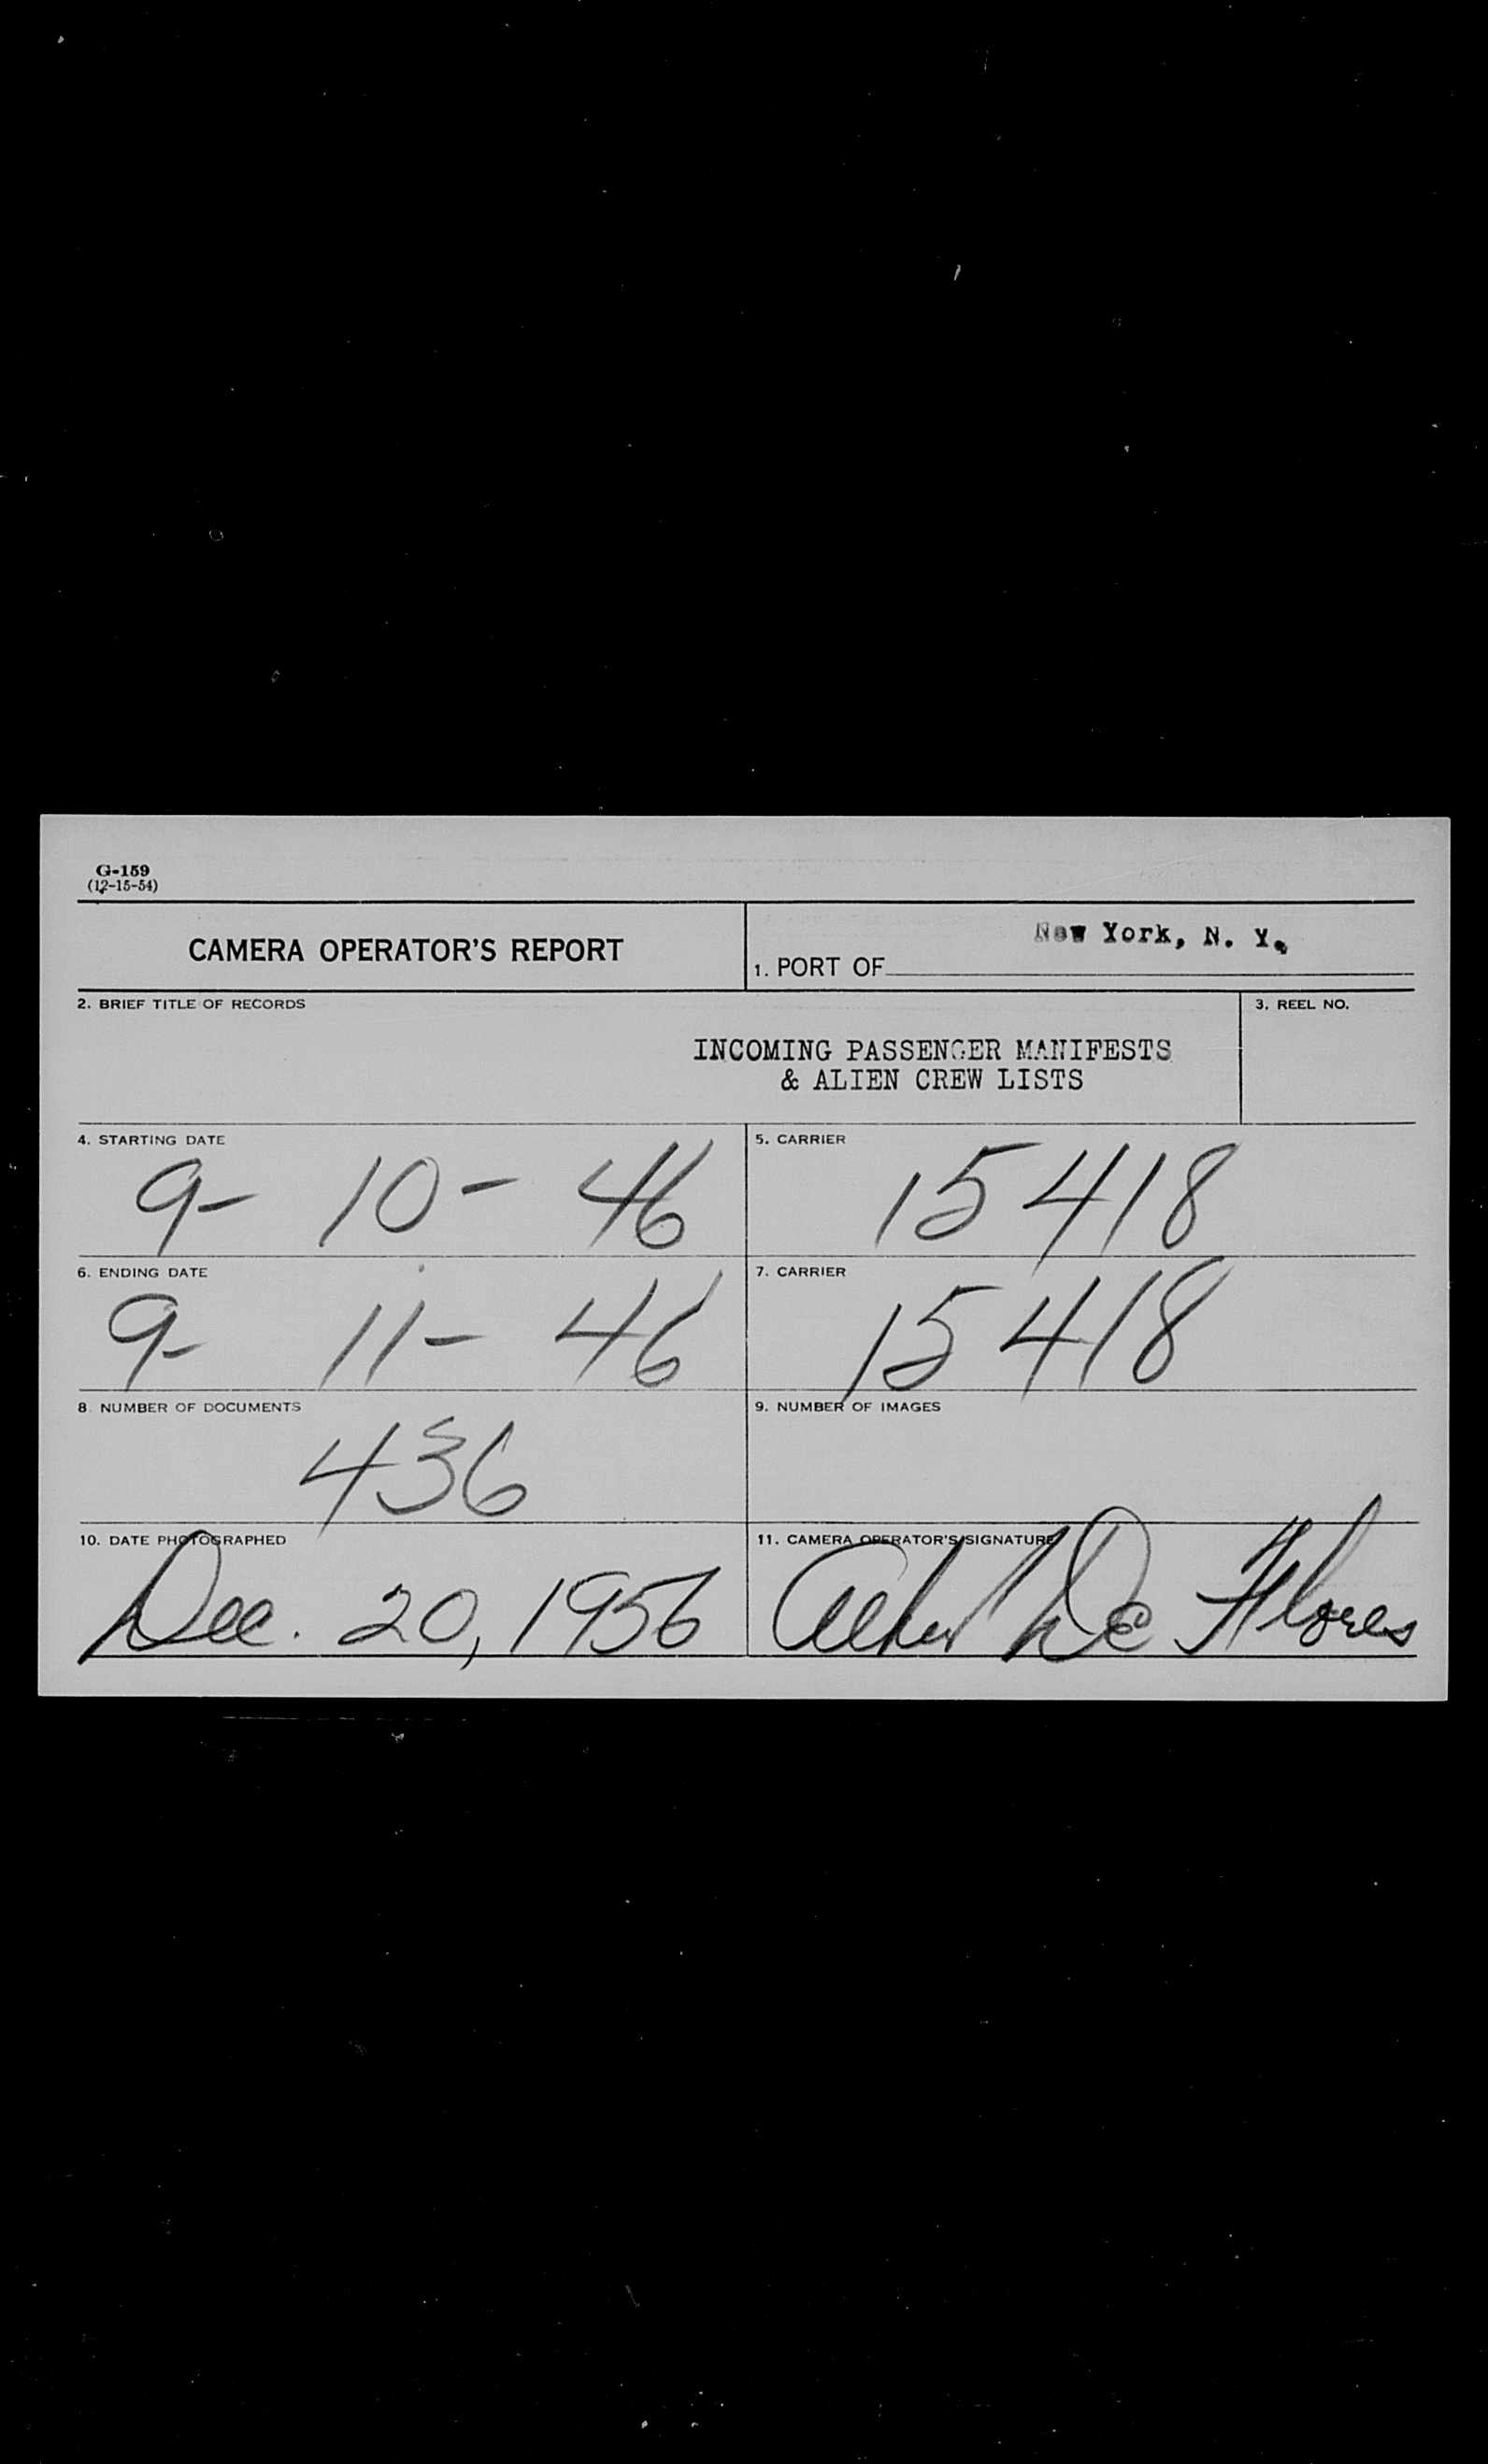 G-159
(12-15-54)
CAMERA OPERATOR'S REPORT
1. PORT OF New York, N. Y.
2. BRIEF TITLE OF RECORDS
INCOMING PASSENGER MANIFESTS
& ALIEN CREW LISTS
3. REEL NO.
4. STARTING DATE
9- 10- 46
5. CARRIER
15418
6. ENDING DATE
9- 11- 46
7. CARRIER
15418
8. NUMBER OF DOCUMENTS
436
9. NUMBER OF IMAGES
10. DATE PHOTOGRAPHED
Dec. 20, 1956
11. CAMERA OPERATOR'S SIGNATURE
De Flores